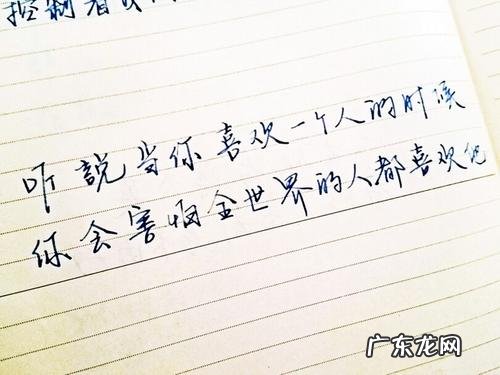 控制着
听說当你喜欢一个人的时候
你会害怕全世界的人都喜欢他
广东龙网